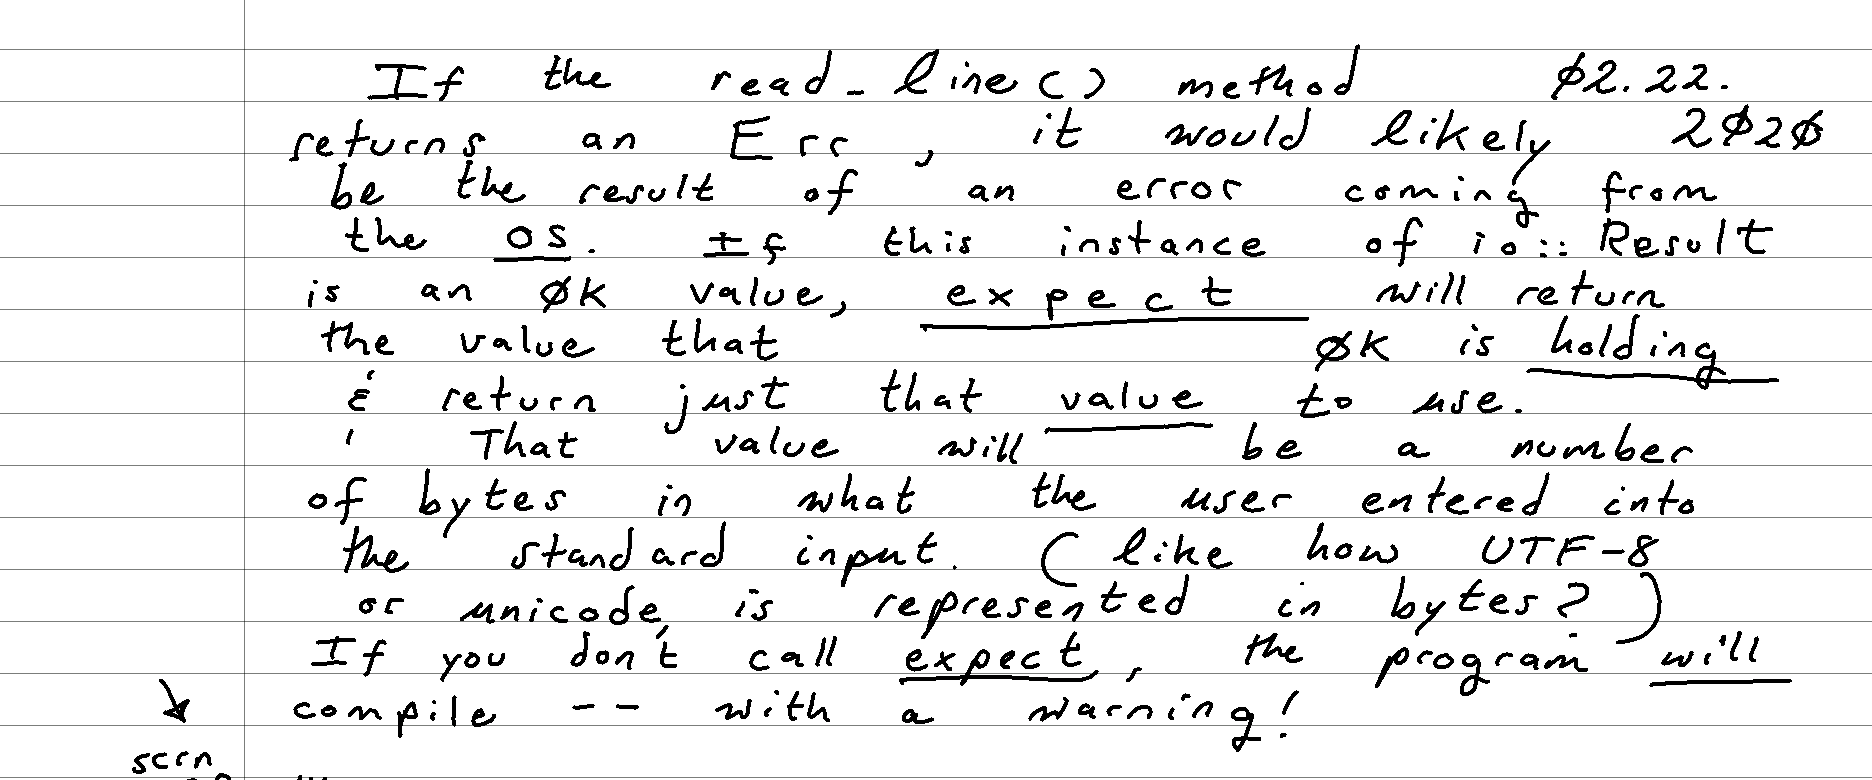 If the read_line() method Ø2.22.
returns an Err, it would likely 2Ø2Ø
be the result of an error coming from
the OS. If this instance of io::Result
is an Øk value, expect will return
the value that Øk is holding
& return just that value to use.
That value will be a number
of bytes in what the user entered into
the standard input. (like how UTF-8
or unicode, is represented in bytes?)
If you don't call expect, the program will
compile -- with a warning!
scrn